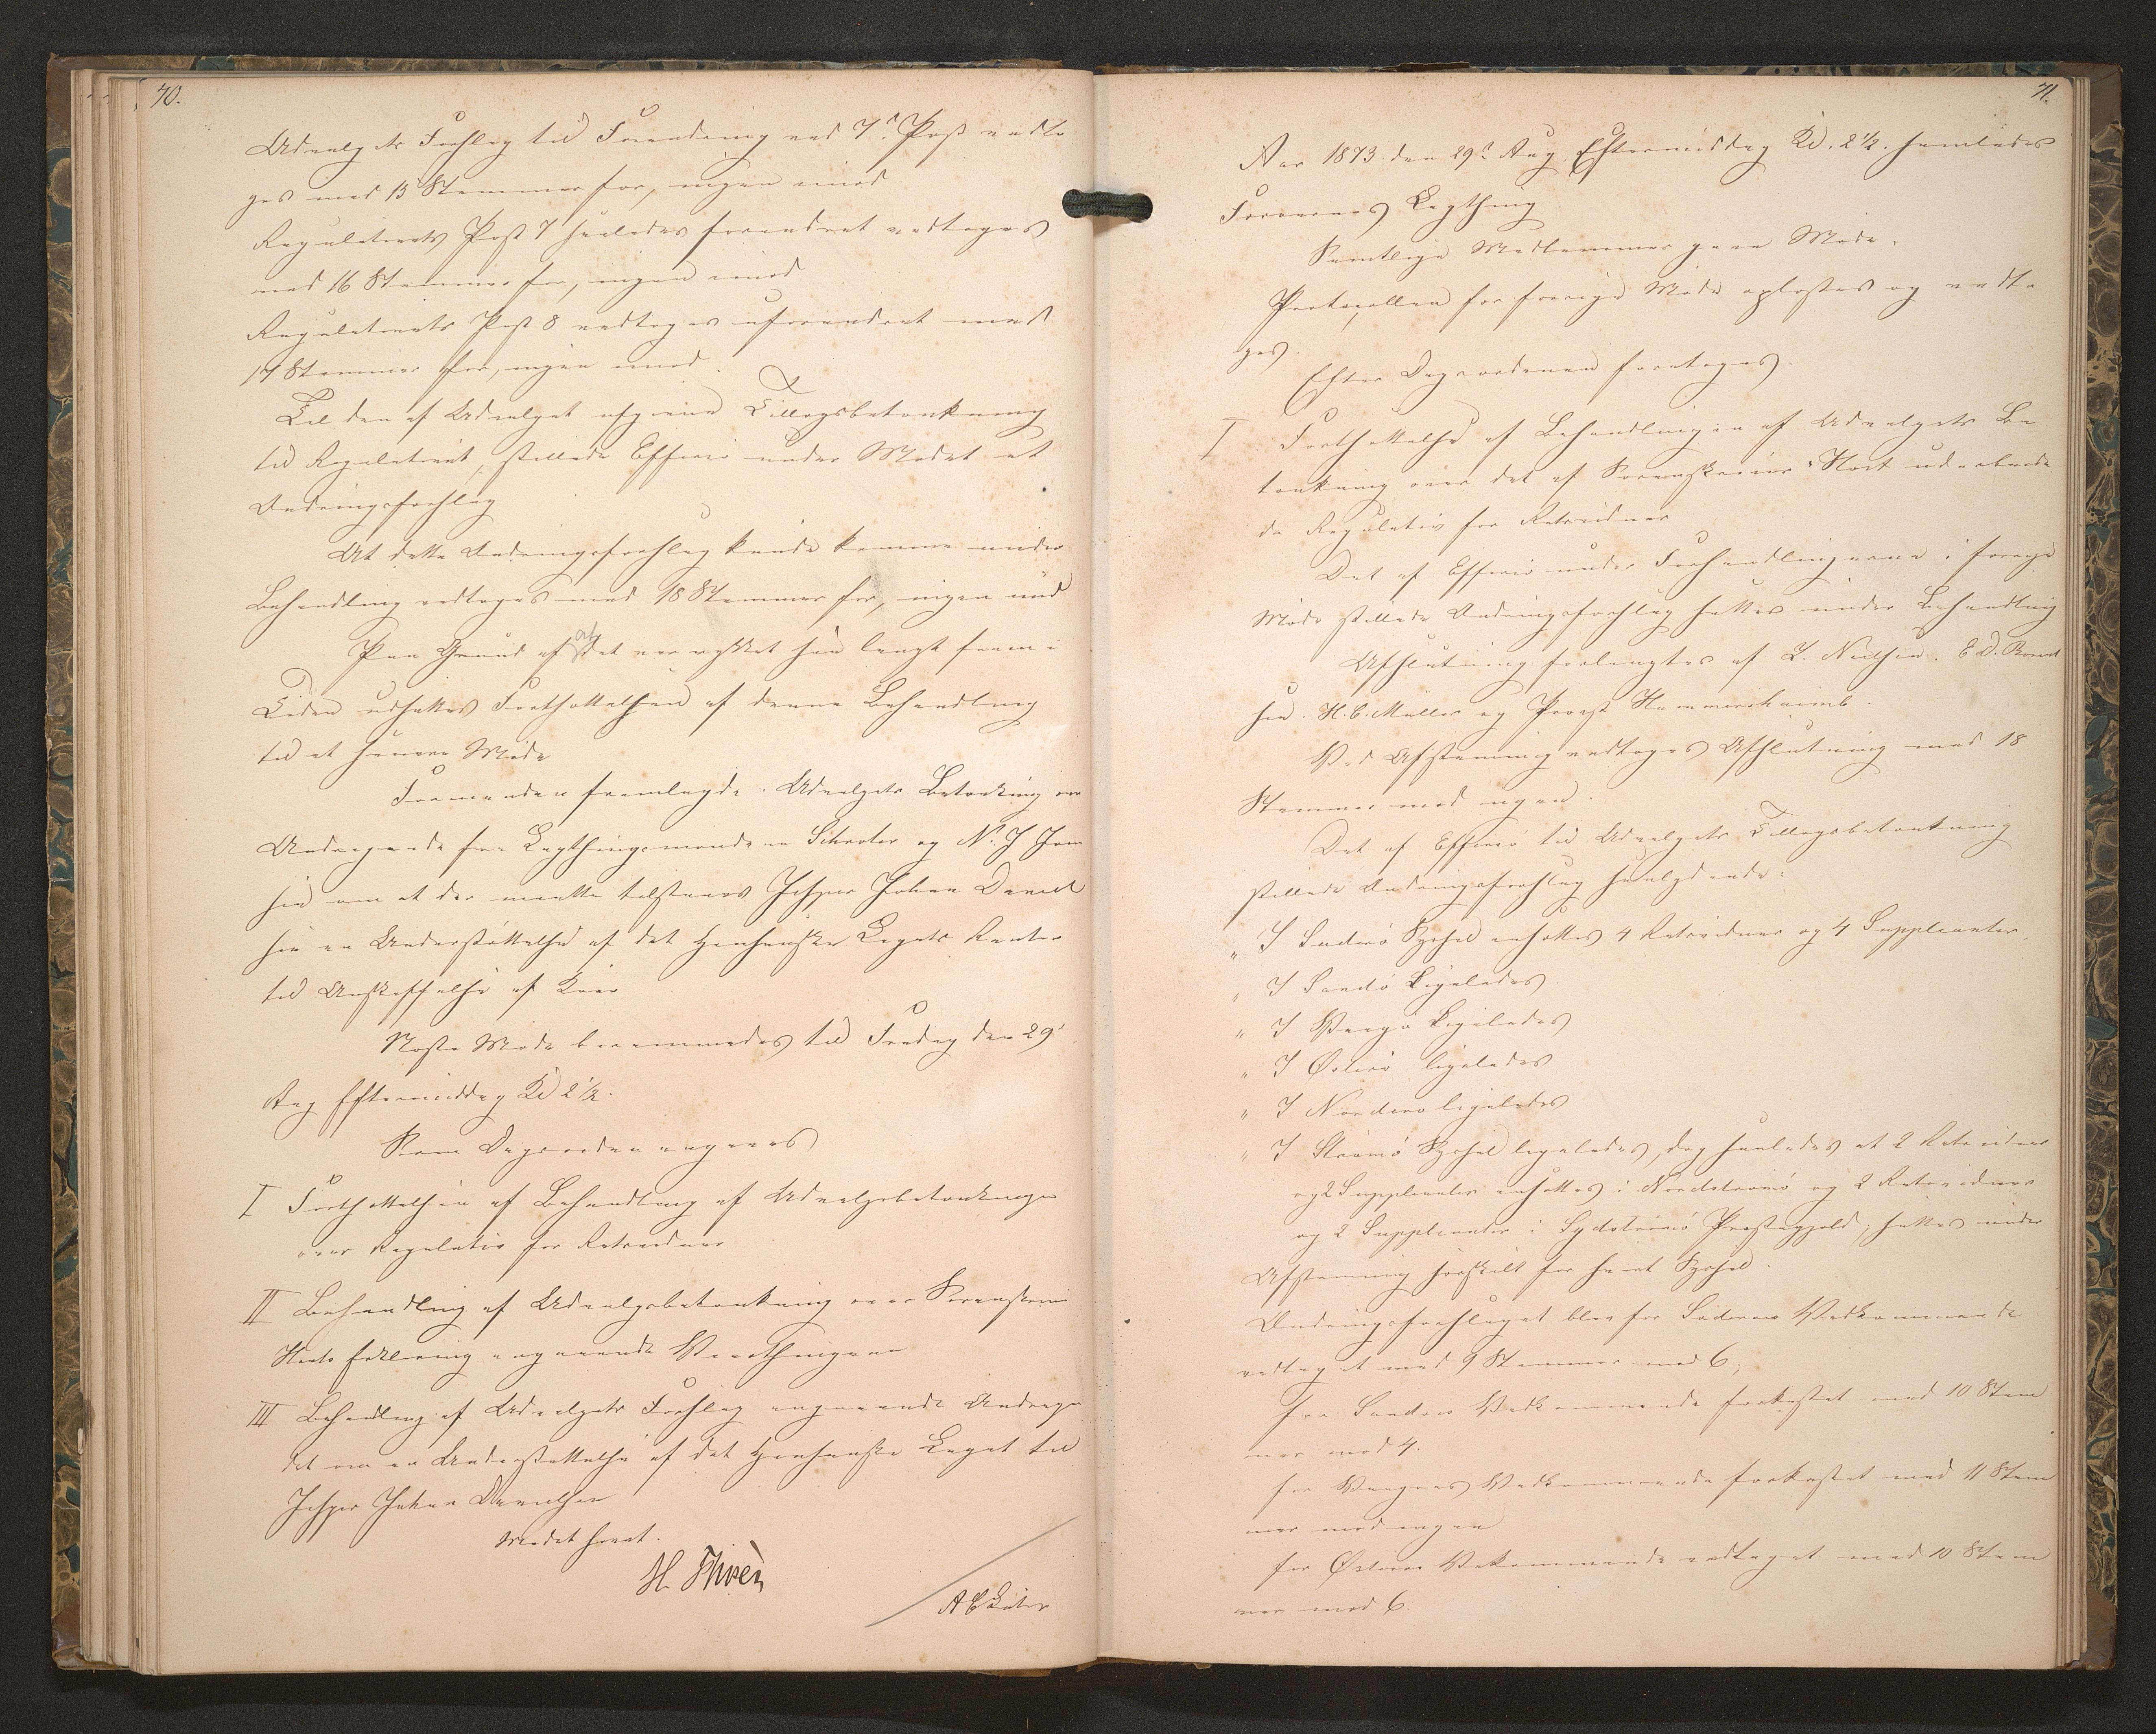 70.
Udvalgets Forslag til Forandring ved 7de Post vedto
ges med 13 Stemmer for, ingen imod
Regulativets Post 7 saaledes forandret vedtoges
med 16 Stemmer for, ingen imod
Regulativets Post 8 vedtoges uforandret med
17 Stemmer for, ingen imod.
Til den af Udvalget afgivne Tillægsbetænkning
til Regulativet, stillede Effersø under Mødet et
Ændringsforslag
At dette Ændringsforslag kunde komme under
Behandling vedtoges med 18 Stemmer for, ingen imod
Paa Grund af at det var rykket saa langt frem i
Tiden udsattes Fortsættelsen af denne Behandling
til et senere Møde
Formanden fremlagde Udvalgets Betænkning over
Andragende fra Lagthingsmændene Schrøter og N. J Joen
sen om at der maatte tilstaaes Jesper Johan Daniel
sen en Understøttelse af det Jensenske Legats Renter
til Anskaffelse af Køer
Næste Møde berammedes til Fredag den 29de
Aug Eftermiddag Kl 2½.
Som Dagsorden angaves
I Fortsættelsen af Behandling af Udvalgsbetænkningen
over Regulativ for Retsvidner
II Behandling af Udvalgsbetænkning over Sorenskriver
Horts Erklæring angaaende Vaarthingene
III Behandling af Udvalgets Forslag angaaende Andragen
det om en Understøttelse af det Jensenske Legat til
Jesper Johan Danielsen
Mødet hævet.
H. Finsen
A C Lützen
71.
Aar 1873 den 29de Aug Eftermiddag Kl. 2½. samledes
Færøernes Lagthing
Samtlige Medlemmer gave Møde.
Protocollen for forrige Møde oplæstes og vedto
ges.
Efter Dagsordenen foretoges.
I Fortsættelse af Behandlingen af Udvalgets Be
tænkning over det af Sorenskriver Hort udarbeide
de Regulativ for Retsvidner
Det af Effersø under Forhandlingerne i forrige
Møde stillede Ændringsforslag sattes under Behandling
Afslutning forlangtes af Z. Nielsen. E. D. Poul
sen. H. C. Müller og Provst Hammershaimb.
Ved Afstemning vedtoges Afslutning med 18
Stemmer mod ingen.
Det af Effersø til Udvalgets Tillægsbetænkning
stillede Ændringsforslag saalydende:
" I Suderø Syssel ansættes 4 Retsvidner og 4 Suppleanter
" I Sandø Ligeledes
" I Vaagø Ligeledes
" I Østerø ligeledes
" I Norderø ligeledes
" I Strømø Syssel ligeledes, dog saaledes at 2 Retsvidner
og 2 Suppleanter ansættes i Nordstrømø og 2 Retsvidner
og 2 Suppleanter i Sydstrømø Præstegjeld; sattes under
Afstemning særskilt for hvert Syssel.
Ændringsforslaget blev for Suderøes Vedkommende
vedtaget med 9 Stemmer mod 6;
for Sandøes Vedkommende forkastet med 10 Stem
mer mod 4.
for Vaagøes Vedkommende forkastet med 11 Stem
mer mod ingen
for Østerøes Vekommende vedtaget med 10 Stem
mer mod 6.